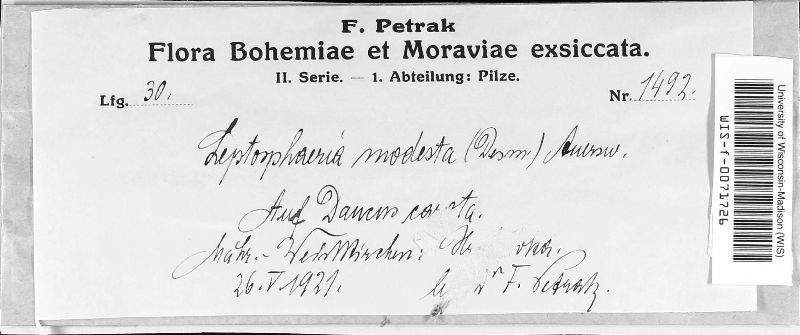 F. Petrak
Flora Bohemiae et Moraviae exsiccata.
II. Serie. — 1. Abteilung: Pilze.
Lfg. 30.
Nr. 1492.
Leptosphaeria modesta (Desm.) Auersw.
Auf Daucus carota.
Mähr.-Weisskirchen:
26.V.1921. Dr F. Petrak.
University of Wisconsin-Madison (WIS)
WIS-f-0071726